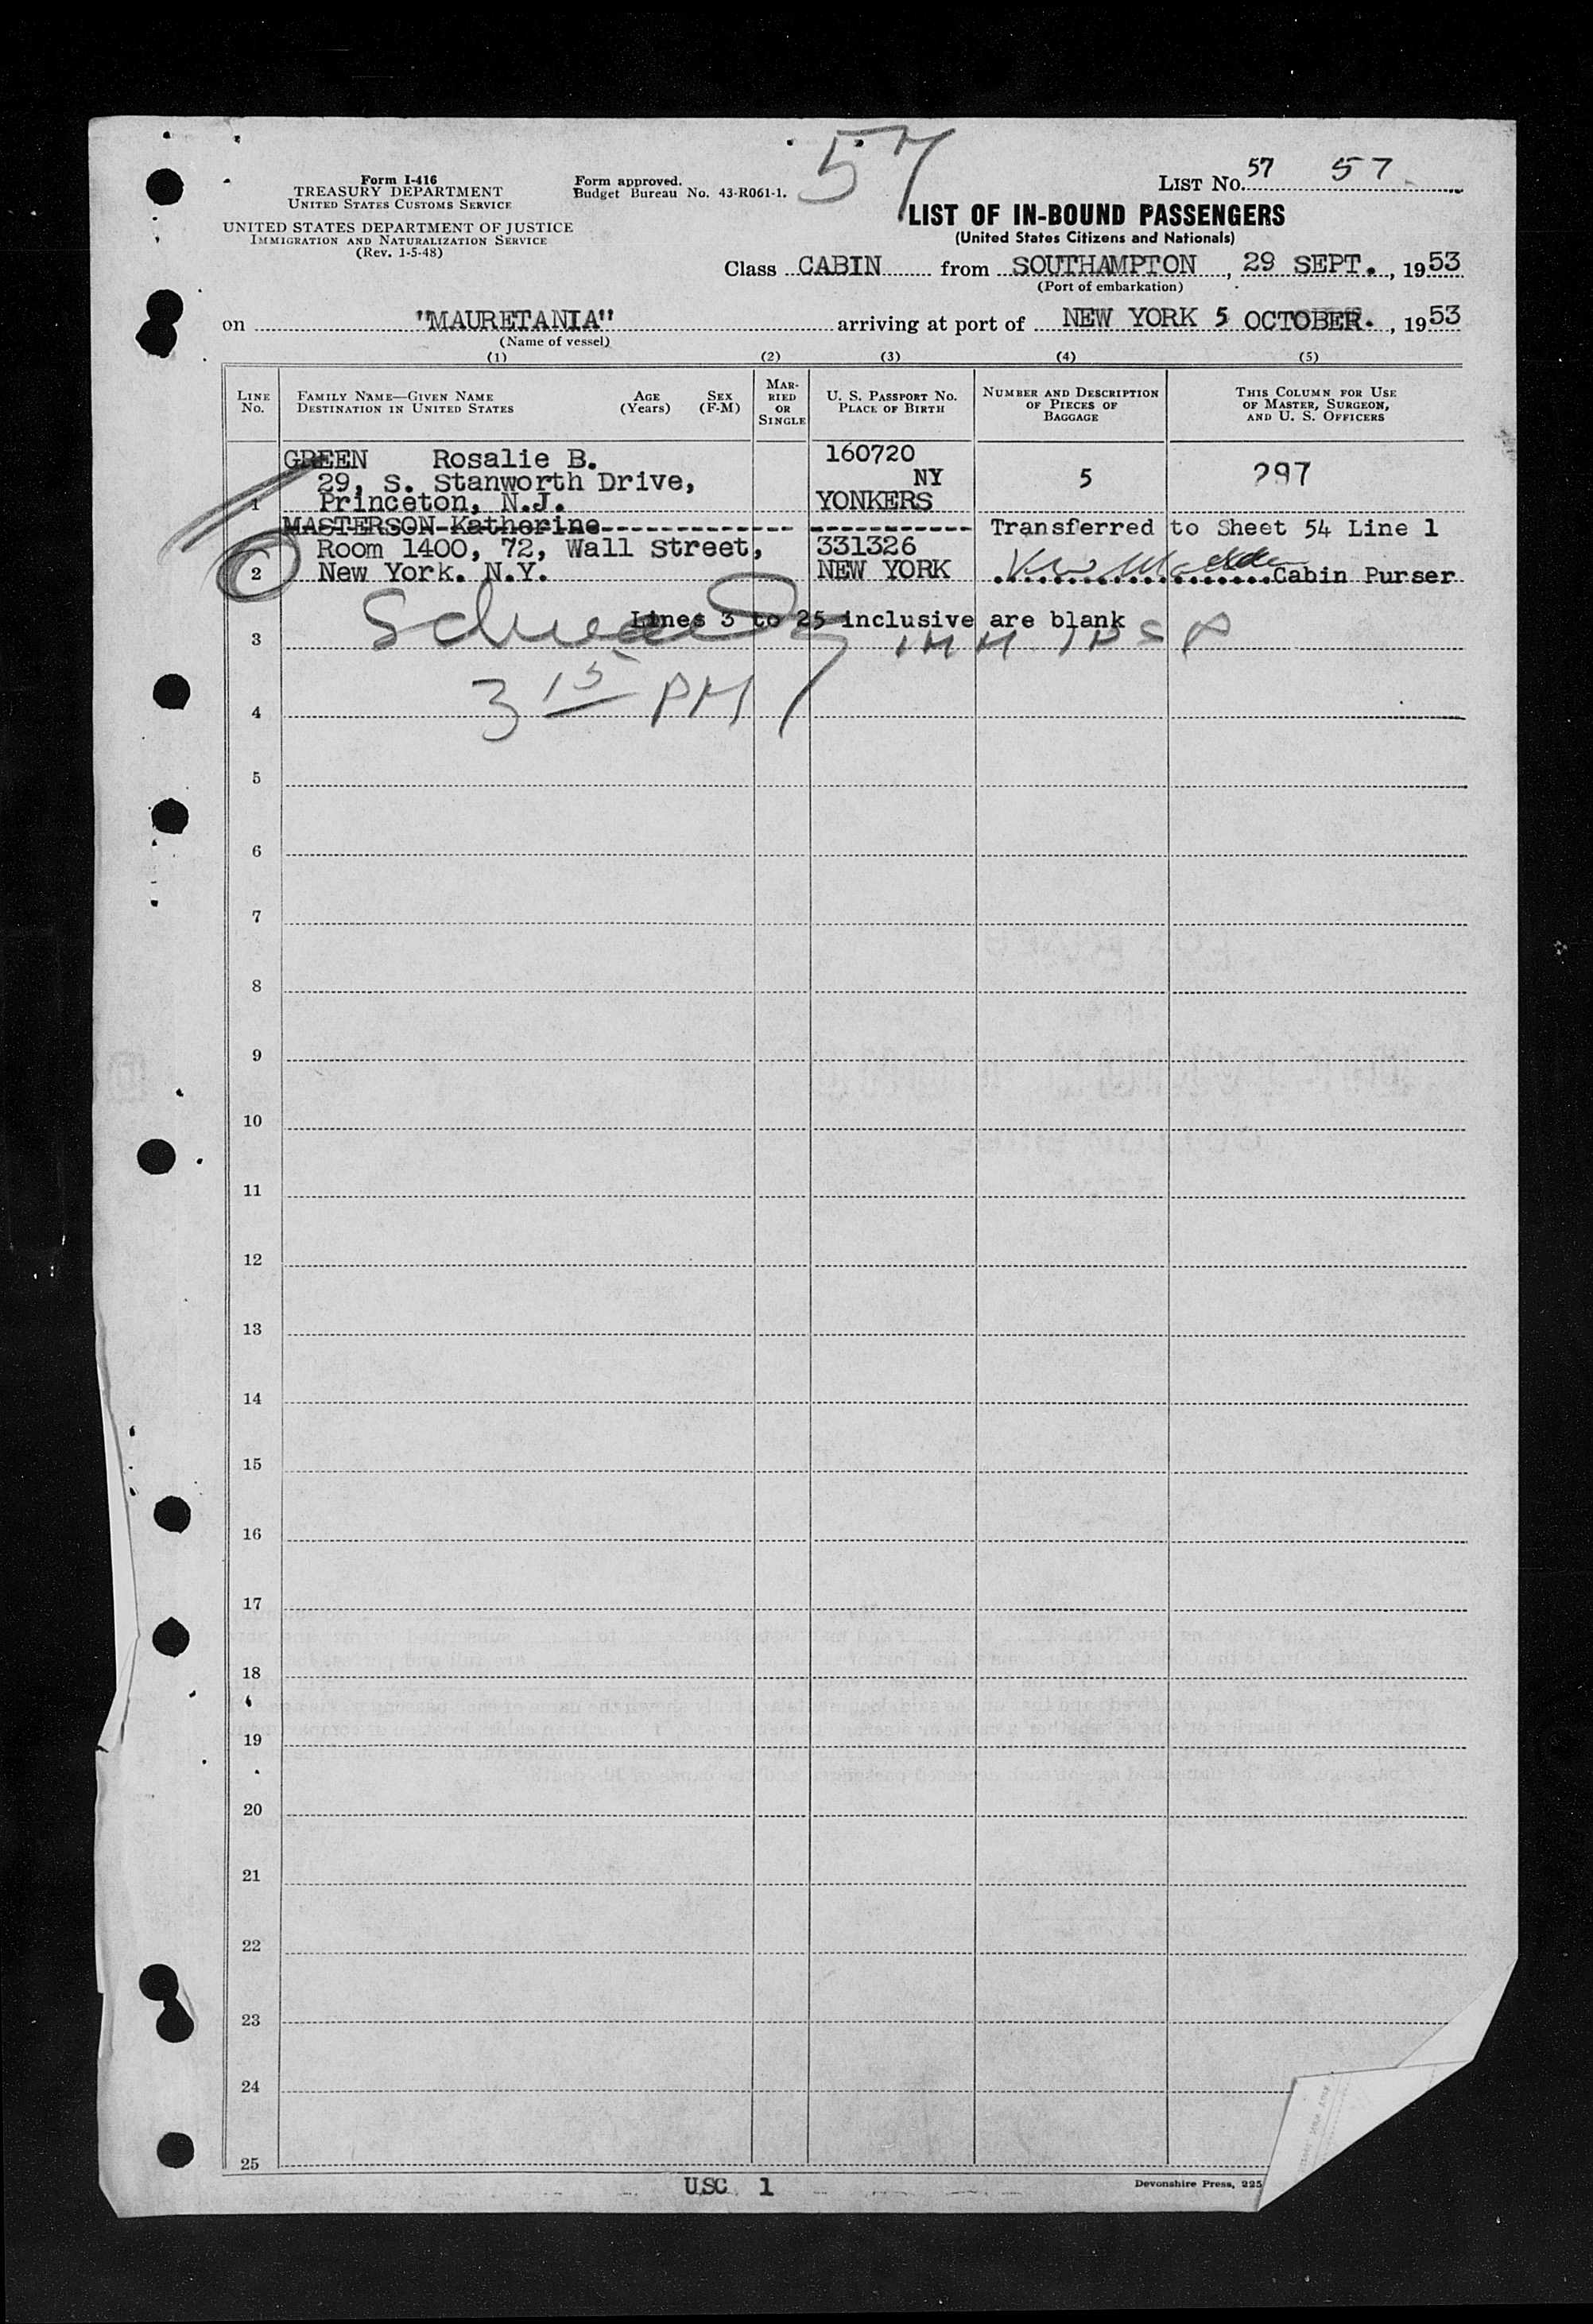 57
Form I-416
TREASURY DEPARTMENT
UNITED STATES CUSTOMS SERVICE
UNITED STATES DEPARTMENT OF JUSTICE
IMMIGRATION AND NATURALIZATION SERVICE
(Rev. 1-5-48)
Form approved.
Budget Bureau No. 43-R061-1.
LIST NO. 57 57
LIST OF IN-BOUND PASSENGERS
(United States Citizens and Nationals)
Class CABIN from SOUTHAMPTON, 29 SEPT., 1953
(Port of embarkation)
on "MAURETANIA" arriving at port of NEW YORK 5 OCTOBER., 1953
(Name of vessel)
(1) (2) (3) (4) (5)
LINE No.
FAMILY NAME—GIVEN NAME
DESTINATION IN UNITED STATES
AGE (Years)
SEX (F-M)
MARRIED OR SINGLE
U. S. PASSPORT NO.
PLACE OF BIRTH
NUMBER AND DESCRIPTION OF PIECES OF BAGGAGE
THIS COLUMN FOR USE OF MASTER, SURGEON, AND U. S. OFFICERS
GREEN Rosalie B. 160720
29, S. Stanworth Drive, NY 5 297
1 Princeton, N.J. YONKERS
MASTERSON Katherine Transferred to Sheet 54 Line 1
Room 1400, 72, Wall Street, 331326
2 New York. N.Y. NEW YORK Cabin Purser
Lines 3 to 25 inclusive are blank
3 IMM INSP
3 15 PM
4
5
6
7
8
9
10
11
12
13
14
15
16
17
18
19
20
21
22
23
24
25
USC 1
Devonshire Press, 225